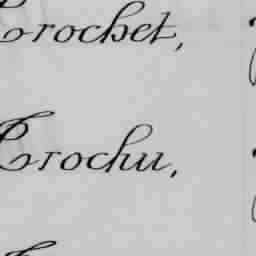 Crochet,
Crochu,